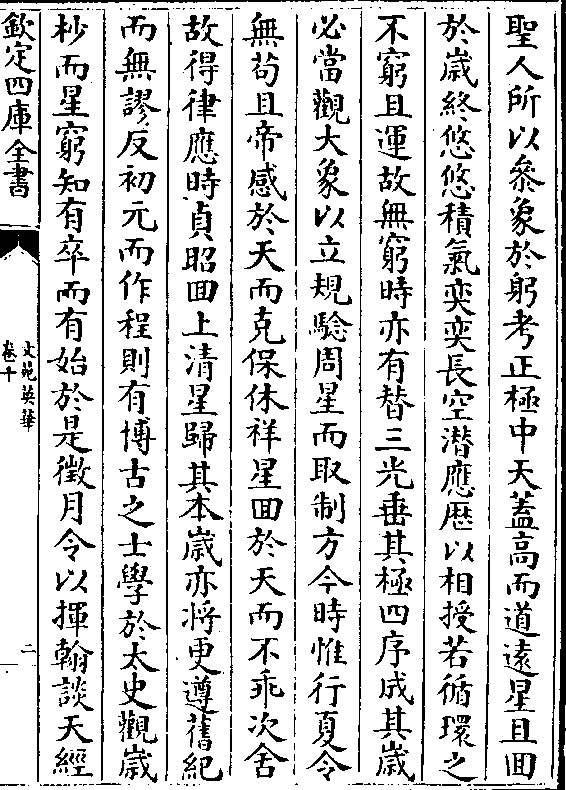 聖人所以叅象於躬考正極中天蓋高而道逺星且囬
於嵗終悠悠積氣奕奕長空潜應厯以相授若循環之
不窮且運故無窮時亦有替三光垂其極四序成其嵗
必當觀大象以立規驗周星而取制方今時惟行夏令
無茍且帝感於天而克保休祥星囬於天而不乖次舍
故得律應時貞昭囬上清星歸其本嵗亦將更遵舊紀
而無謬反初元而作程則有博古之士學於太史觀嵗
杪而星窮知有卒而有始於是徵月令以揮翰談天經
欽定四庫全書
文苑英華
卷十
二